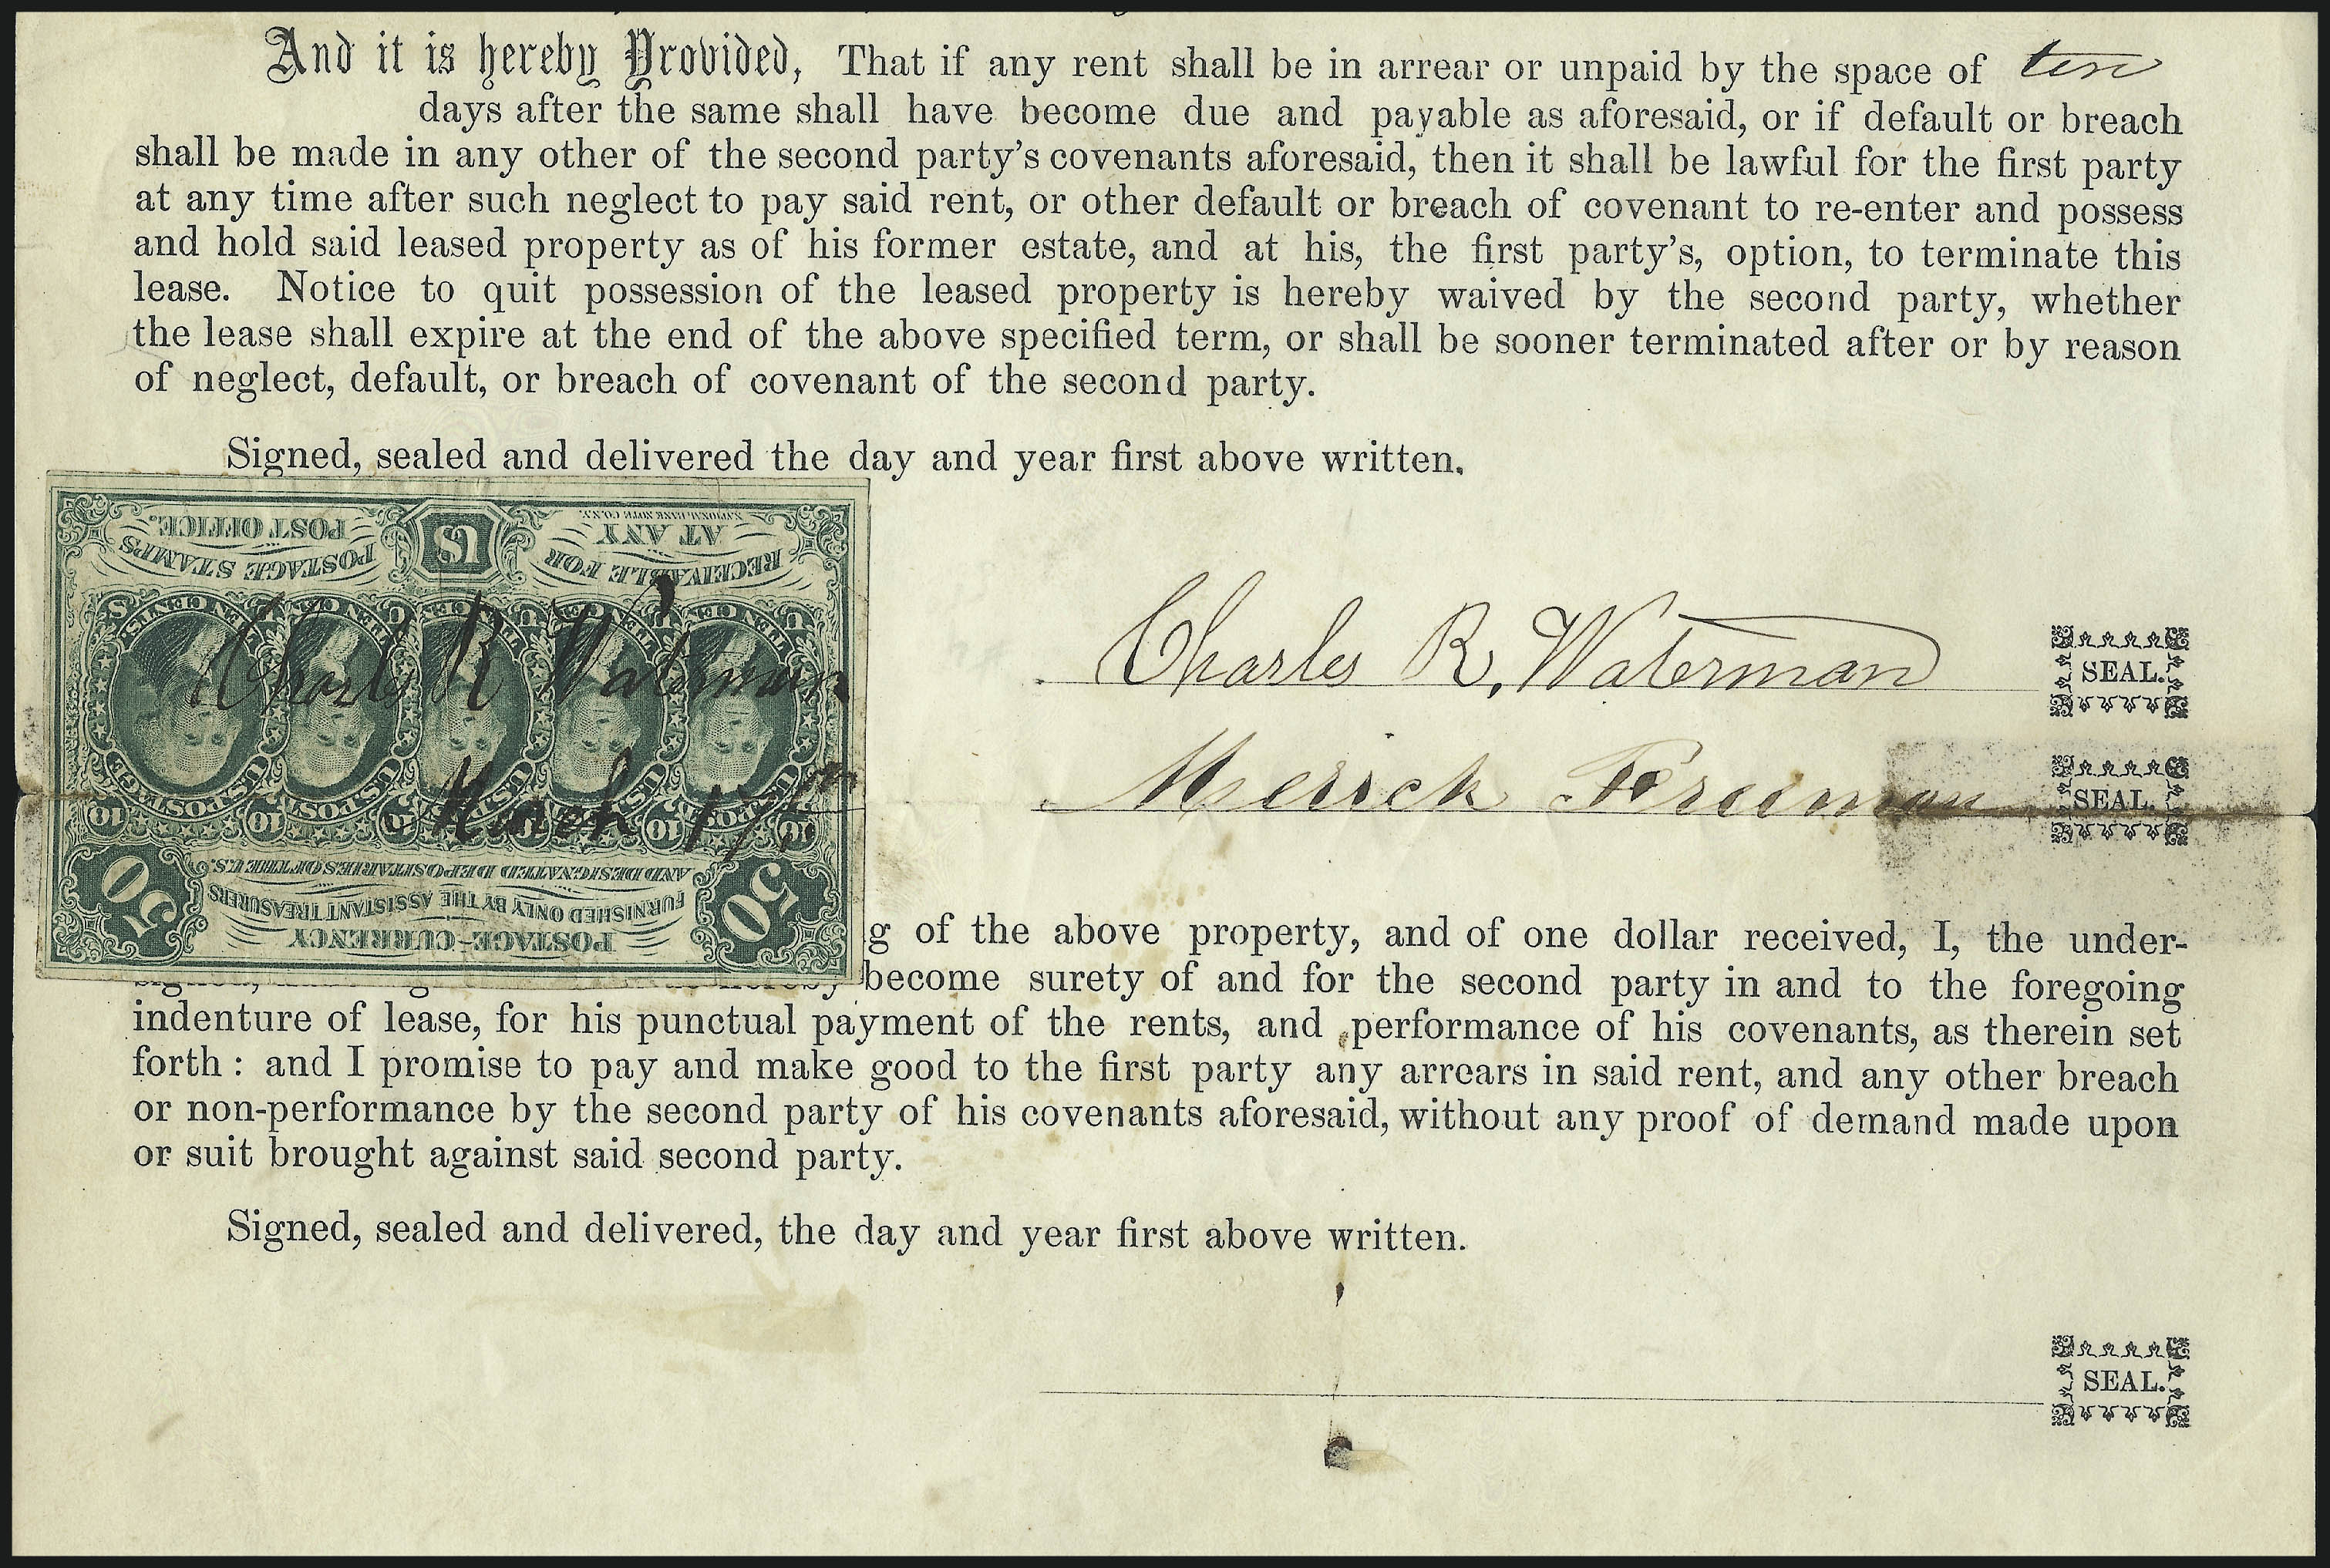 And it is hereby Provided, That if any rent shall be in arrear or unpaid by the space of ten
days after the same shall have become due and payable as aforesaid, or if default or breach
shall be made in any other of the second party's covenants aforesaid, then it shall be lawful for the first party
at any time after such neglect to pay said rent, or other default or breach of covenant to re-enter and possess
and hold said leased property as of his former estate, and at his, the first party's, option, to terminate this
lease. Notice to quit possession of the leased property is hereby waived by the second party, whether
the lease shall expire at the end of the above specified term, or shall be sooner terminated after or by reason
of neglect, default, or breach of covenant of the second party.
Signed, sealed and delivered the day and year first above written.
POSTAGE-CURRENCY
FURNISHED ONLY BY THE ASSISTANT TREASURERS
AND DESIGNATED DEPOSITARIES OF THE U.S.
50 50
10 10 10 10
U.S. POSTAGE U.S. POSTAGE U.S. POSTAGE U.S. POSTAGE U.S. POSTAGE
TEN CENTS. TEN CENTS TEN CENTS TEN CENTS TEN CENTS
RECEIVABLE FOR POSTAGE STAMPS
AT ANY US POST OFFICE.
NATIONAL BANK NOTE CO. N.Y.
Charles R Waterman
March 17
Charles R. Waterman SEAL.
Merrick Freeman SEAL.
g of the above property, and of one dollar received, I, the under-
signed, hereby become surety of and for the second party in and to the foregoing
indenture of lease, for his punctual payment of the rents, and performance of his covenants, as therein set
forth : and I promise to pay and make good to the first party any arrears in said rent, and any other breach
or non-performance by the second party of his covenants aforesaid, without any proof of demand made upon
or suit brought against said second party.
Signed, sealed and delivered, the day and year first above written.
SEAL.